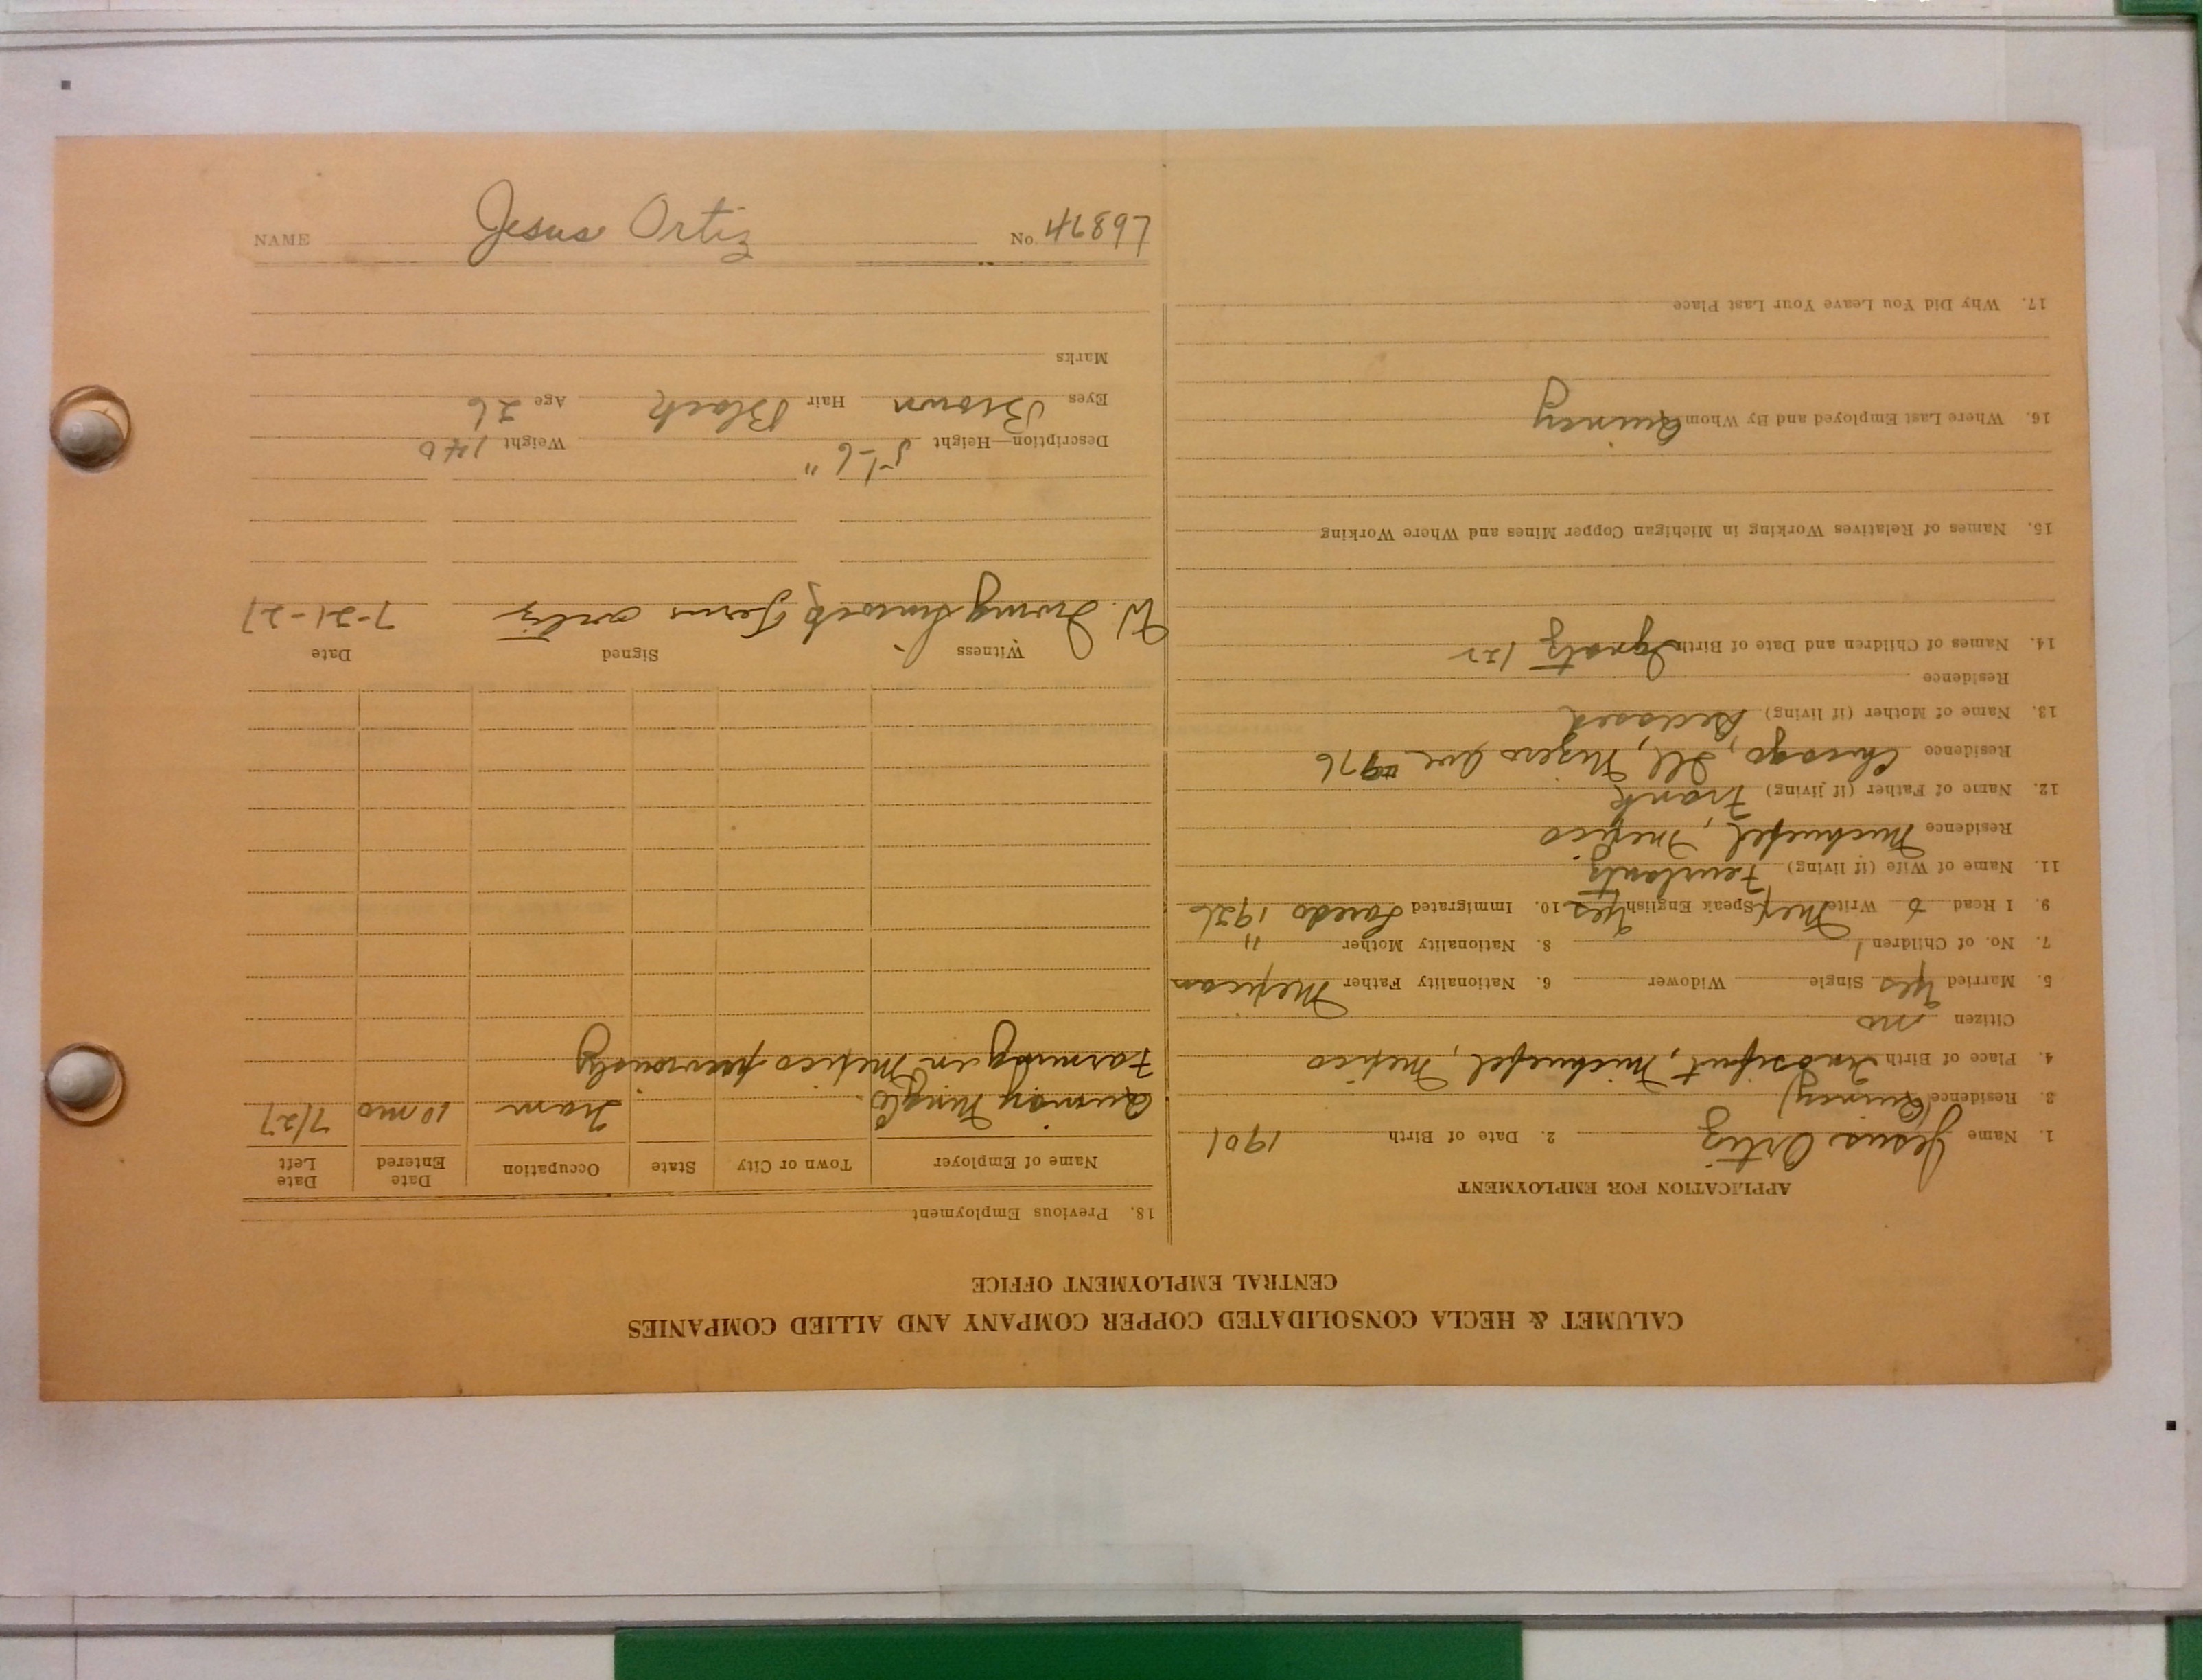 CALUMET & HECLA CONSOLIDATED COPPER COMPANY AND ALLIED COMPANIES
CENTRAL EMPLOYMENT OFFICE
APPLICATION FOR EMPLOYMENT
1. Name Jesus Ortiz 2. Date of Birth 1901
3. Residence Quincy
4. Place of Birth Mexico
Citizen no
5. Married Yes Single Widower 6. Nationality Father Mexican
7. No. of Children 1 8. Nationality Mother "
9. I Read & Write Mex Speak English Yes 10. Immigrated Laredo 1926
11. Name of Wife (if living)
Residence Mexico
12. Name of Father (if living) Frank
Residence Chicago, Ill, Ave #976
13. Name of Mother (if living) Deceased
Residence
14. Names of Children and Date of Birth
15. Names of Relatives Working in Michigan Copper Mines and Where Working
16. Where Last Employed and By Whom Quincy
17. Why Did You Leave Your Last Place
18. Previous Employment
Name of Employer Town or City State Occupation Date Entered Date Left
Quincy Mining Co Tram 10 mo 7/27
Farming in Mexico previously
Witness Signed Date
W. Jesus Ortiz 7-21-27
Description—Height 5'-6" Weight 140
Eyes Brown Hair Black Age 26
Marks
NAME Jesus Ortiz No. 47897